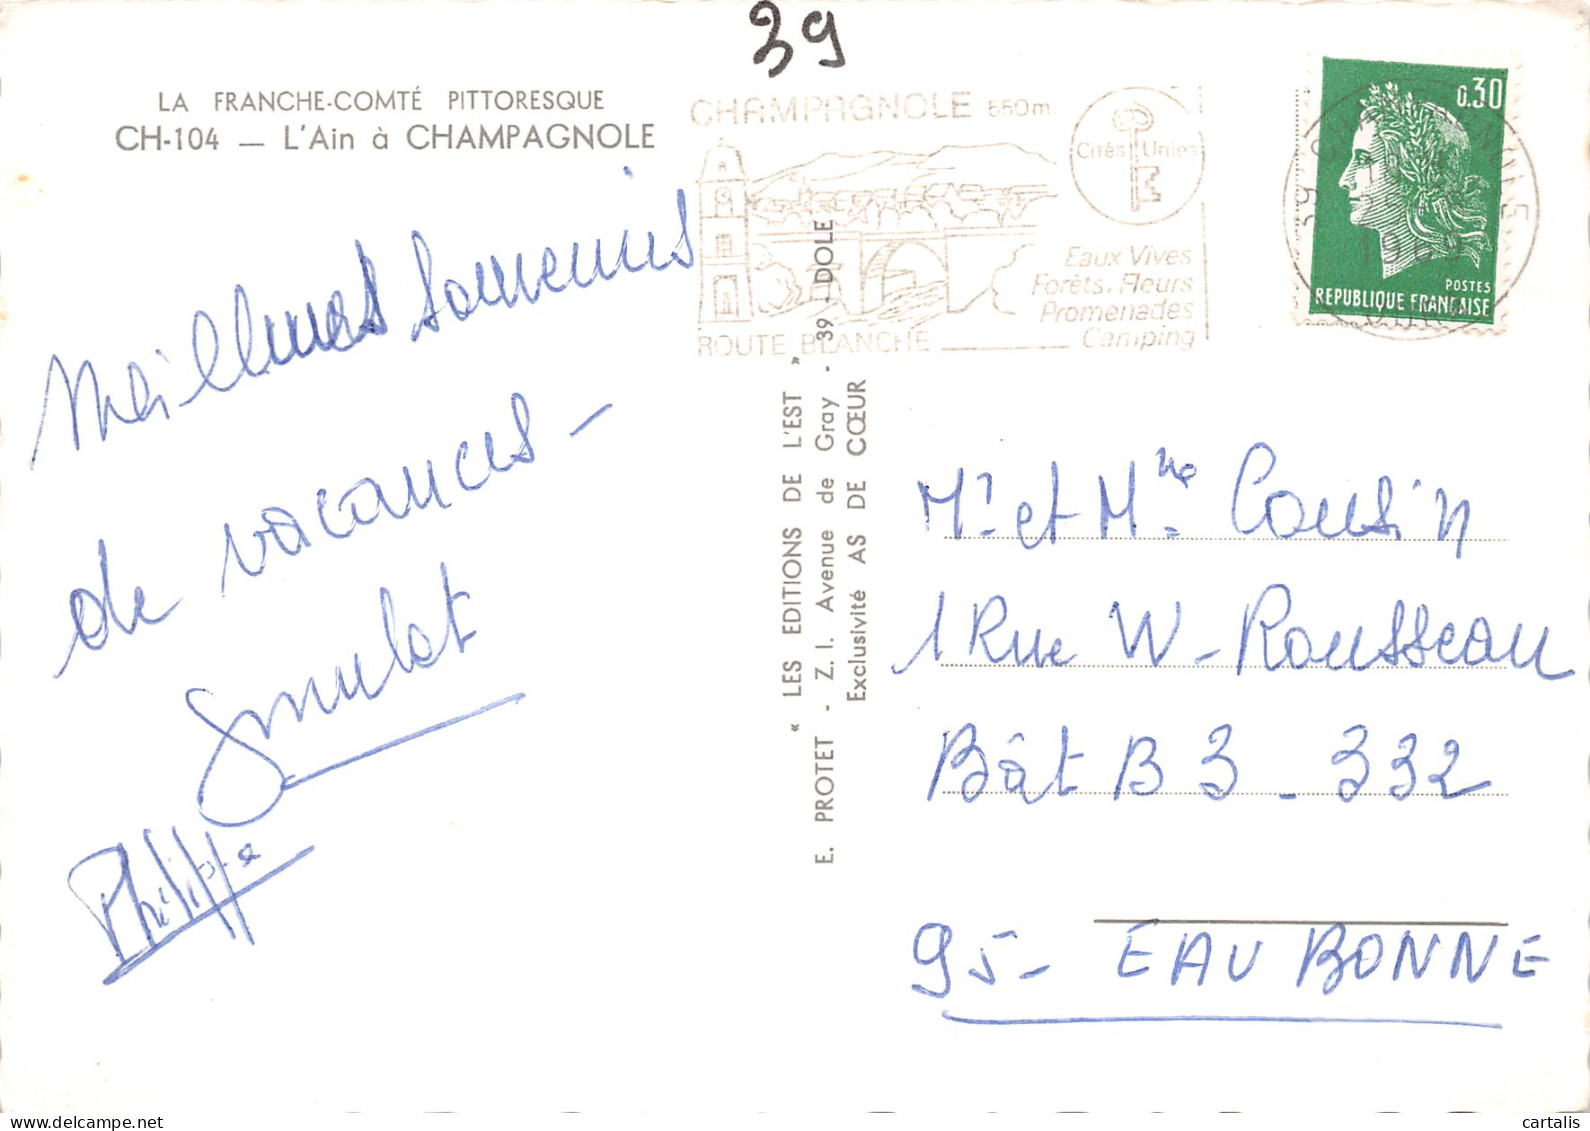 39
LA FRANCHE-COMTÉ PITTORESQUE
CH-104 — L'Ain à CHAMPAGNOLE
Meilleurs souvenirs
de vacances –
Philippe
CHAMPAGNOLE 550m.
Cités Unies
Eaux Vives
Forêts. Fleurs
Promenades
Camping
ROUTE BLANCHE
0,30
POSTES
REPUBLIQUE FRANÇAISE
1969
JURA
« LES EDITIONS DE L'EST »
E. PROTET - Z. I. Avenue de Gray - 39 - DOLE
Exclusivité AS DE CŒUR
Mr et Mme Cousin
1 Rue W- Rousseau
Bât B 3 - 332
95- EAUBONNE
cartalis
delcampe.net